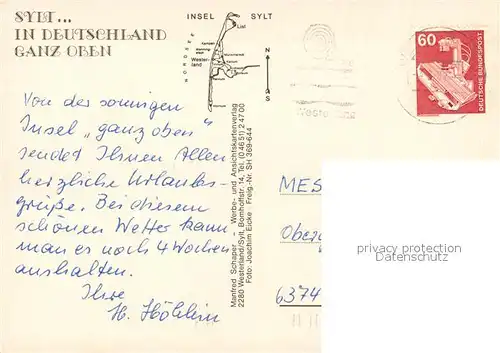 SYLT...
IN DEUTSCHLAND
GANZ OBEN
INSEL SYLT
NORDSEE
List
Kampen
Wester-
land
N
S
60
DEUTSCHE BUNDESPOST
Westerland
Von der sonnigen
Insel „ganz oben"
sendet Ihnen Allen
herzliche Urlaubs-
grüße. Bei diesem
schönen Wetter kann
man es noch 4 Wochen
aushalten.
Ihre
Manfred Schaper – Werbe- und Ansichtskartenverlag
2280 Westerland/Sylt, Bomhoffstr. 14, Tel. (0 46 51) 2 47 00
Foto: Joachim Eicke Freig.-Nr. SH 369-644
MES
Ober
6374
privacy protection
Datenschutz